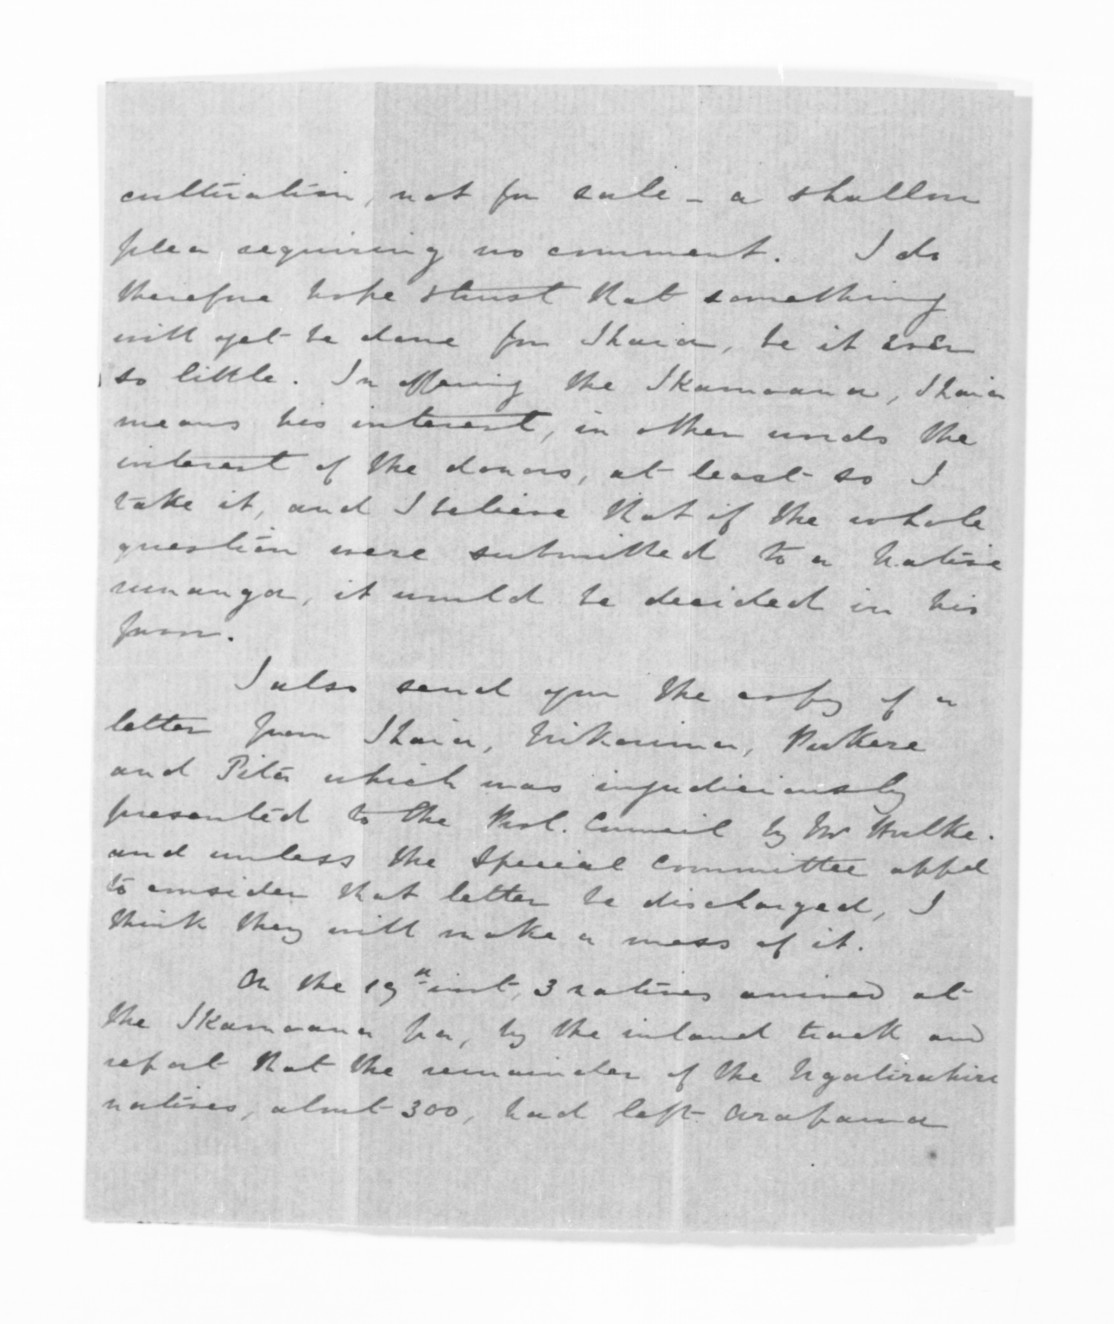 cultivation, not for sale - a shallow
plea requiring no comment. I do
therefore hope & trust that something
will yet be done for Ihaia, be it ever
so little. In offering the Ikamoana, Ihaia
means his interest, in other words the
interest of the donors, at least so I
take it, and I believe that if the whole
question were submitted to a native
runanga, it would be decided in his
favor.
I also send you the copy of a
letter from Ihaia, Nikorima, Pukere
and Pita which was injudiciously
presented to the Prol. Council by Mr Hulke.
and unless the Special Committee appd
to consider that letter be discharged, I
think they will make a mess of it.
On the 19th inst, 3 natives arrived at
the Ikamoana pa, by the inland track and
report that the remainder of the Ngatirahiri
natives, about 300, had left Arapawa